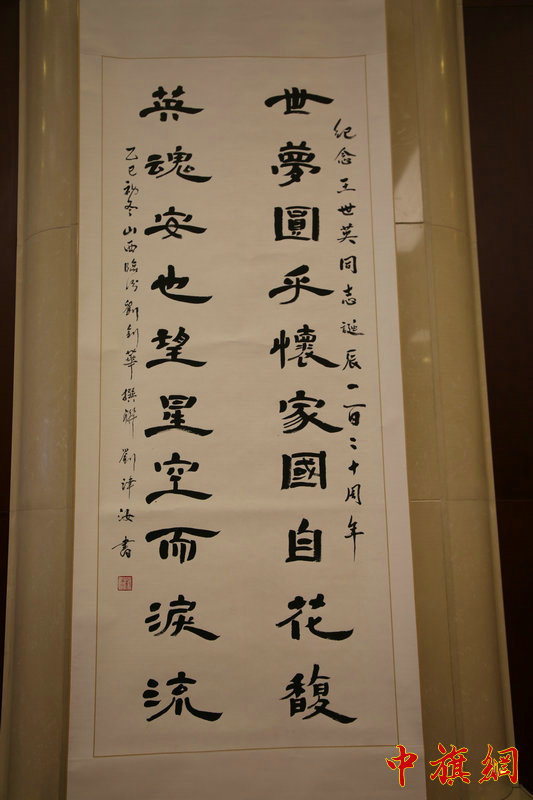 紀念王世英同志誕辰一百二十周年
世夢圓乎懷家國自花馥
英魂安也望星空而淚流
乙巳初冬山西臨汾劉釗華撰聯 劉津汝書
中旗網